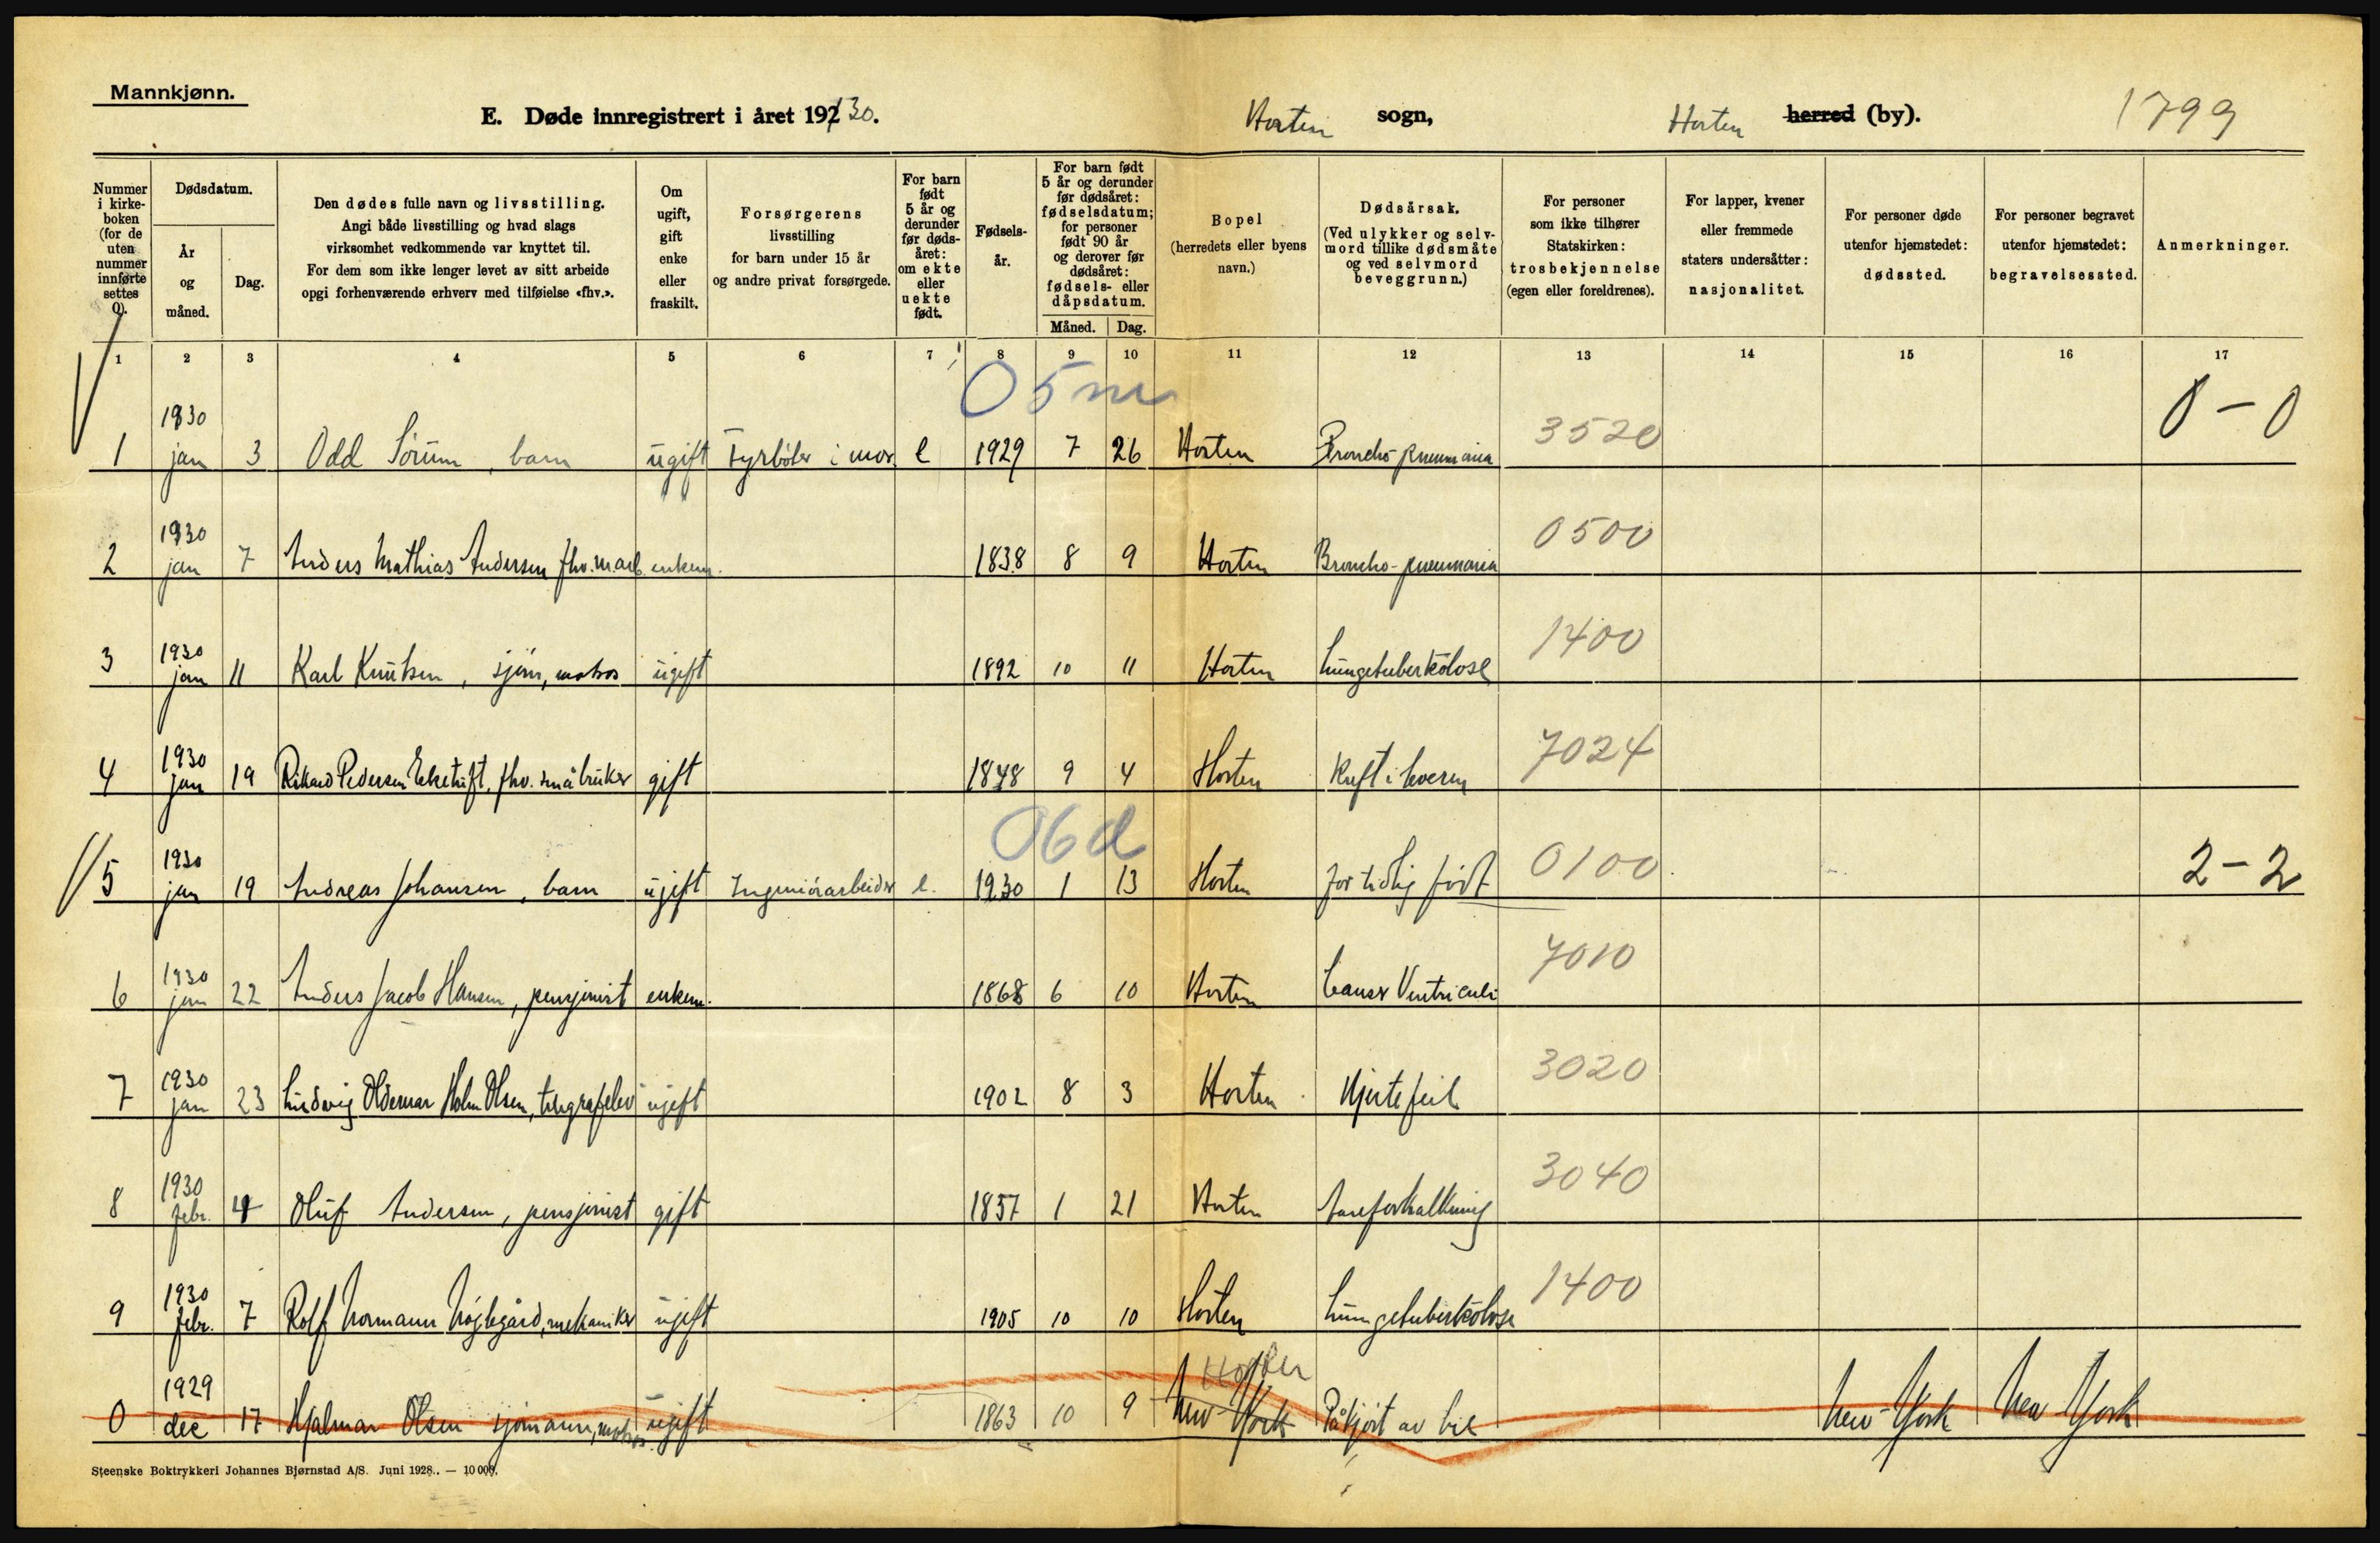 Mannkjønn.
E. Døde innregistrert i året 1930.
Horten sogn,
Horten herred (by).
1799
Nummer i kirkeboken (for de uten nummer innførte settes 0).
Dødsdatum.
År og måned.
Dag.
Den dødes fulle navn og livsstilling.
Angi både livsstilling og hvad slags
virksomhet vedkommende var knyttet til.
For dem som ikke lenger levet av sitt arbeide
opgi forhenværende erhverv med tilføielse «fhv.».
Om ugift, gift enke eller fraskilt.
Forsørgerens livsstilling for barn under 15 år og andre privat forsørgede.
For barn født 5 år og derunder før dødsåret: om ekte eller uekte født.
Fødselsår.
For barn født 5 år og derunder før dødsåret: fødselsdatum; for personer født 90 år og derover før dødsåret: fødsels- eller dåpsdatum.
Måned.
Dag.
Bopel (herredets eller byens navn.)
Dødsårsak. (Ved ulykker og selvmord tillike dødsmåte og ved selvmord beveggrunn.)
For personer som ikke tilhører Statskirken: trosbekjennelse (egen eller foreldrenes).
For lapper, kvener eller fremmede staters undersåtter: nasjonalitet.
For personer døde utenfor hjemstedet: dødssted.
For personer begravet utenfor hjemstedet: begravelsessted.
Anmerkninger.
1 2 3 4 5 6 7 8 9 10 11 12 13 14 15 16 17
05m
1 1930 jan 3 Odd Sörum, barn ugift Fyrböter i mar. e 1929 7 26 Horten Broncho pneumonia 3520 0-0
2 1930 jan 7 Anders Mathias Andersen fhv. marb. enkem. 1838 8 9 Horten Broncho-pneumonia 0500
3 1930 jan 11 Karl Knutsen, sjöm, matros ugift 1892 10 11 Horten Lungetuberkolose 1400
4 1930 jan 19 Rikard Pedersen fhv. småbruker gift 1848 9 4 Horten Kreft i leveren 7024
06d
5 1930 jan 19 Andreas Johansen, barn ugift Ingeniörarbeider e. 1930 1 13 Horten for tidlig født 0100 2-2
6 1930 jan 22 Anders Jacob Hansen, pensjonist enkem. 1868 6 10 Horten Cancer Ventriculi 7010
7 1930 jan 23 Ludvig Oldemar Holm Olsen, telegrafelev ugift 1902 8 3 Horten Hjertefeil 3020
8 1930 febr. 4 Oluf Andersen, pensjonist gift 1857 1 21 Horten Aareforkalkning 3040
9 1930 febr. 7 Rolf Normann mekaniker ugift 1905 10 10 Horten Lungetuberkolose 1400
Horten
0 1929 dec 17 Hjalmar Olsen sjømann, matros. ugift 1863 10 9 New-York Påkjört av bil New-York New-York
Steenske Boktrykkeri Johannes Bjørnstad A/S. Juni 1928. — 10 000.